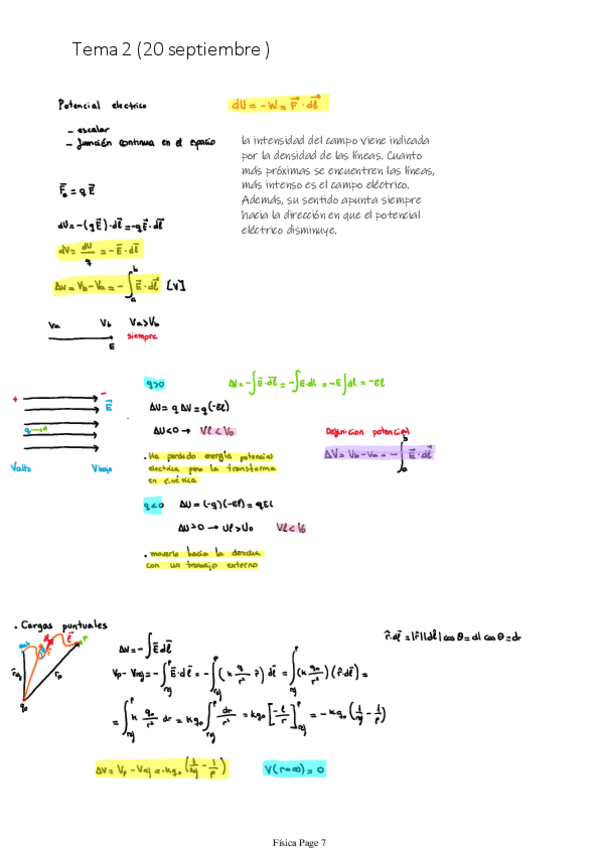 Tema 2 (20 septiembre )
Potencial electrico
dU = -W = F⃗ · dl⃗
- escalar
- función continua en el espacio
la intensidad del campo viene indicada
por la densidad de las líneas. Cuanto
más próximas se encuentren las líneas,
más intenso es el campo eléctrico.
Además, su sentido apunta siempre
hacia la dirección en que el potencial
eléctrico disminuye.
F⃗e = q E⃗
dU = -(qE⃗)·dl⃗ = -qE⃗·dl⃗
dV = dU/q = -E⃗·dl⃗
ΔV = Vb - Va = -∫ₐᵇ E⃗·dl⃗ [V]
Va Vb Va>Vb
siempre
E
q>0
ΔV = -∫E⃗·dl⃗ = -∫E·dl = -E∫dl = -El
+ -
E⃗
q
Valto Vbajo
ΔU = q ΔV = q(-El)
ΔU<0 → Vl < V0
Definicion potencial
ΔV = Vb - Va = -∫ₐᵇ E⃗·dl⃗
. Ha perdido energía potencial
electrica pero la transforma
en cinética
q<0 ΔU = (-q)(-El) = qEl
ΔU>0 → Ul>U0 Vl<V0
. moverlo hacia la derecha
con un trabajo externo
. Cargas puntuales
r̂·dl⃗ = |r̂||dl| cos θ = dl cos θ = dr
ΔV = -∫E⃗dl⃗
q0